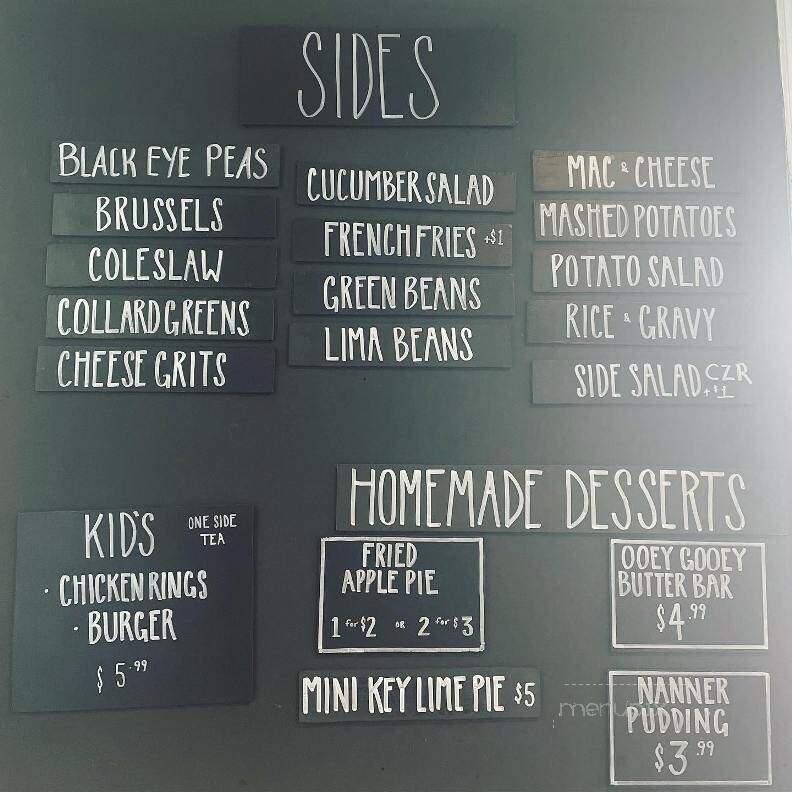 SIDES
BLACK EYE PEAS
BRUSSELS
COLESLAW
COLLARD GREENS
CHEESE GRITS
CUCUMBER SALAD
FRENCH FRIES +$1
GREEN BEANS
LIMA BEANS
MAC & CHEESE
MASHED POTATOES
POTATO SALAD
RICE & GRAVY
SIDE SALAD CZR
+$1
KID'S ONE SIDE
TEA
· CHICKEN RINGS
· BURGER
$5.99
HOMEMADE DESSERTS
FRIED
APPLE PIE
1 for $2 OR 2 for $3
MINI KEY LIME PIE $5
OOEY GOOEY
BUTTER BAR
$4.99
NANNER
PUDDING
$3.99